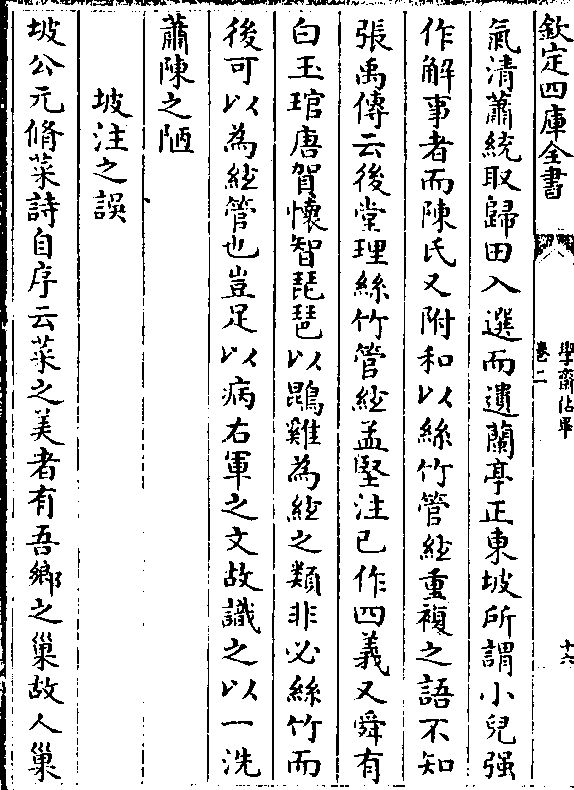 欽定四庫全書
學齋佔畢
卷二
十六
氣清蕭統取歸田入選而遺蘭亭正東坡所謂小兒强
作解事者而陳氏又附和以絲竹管絃重複之語不知
張禹傳云後堂理絲竹管絃孟堅注已作四義又舜有
白玉琯唐賀懷智琵琶以鵾雞為絃之類非必絲竹而
後可以為絃管也豈足以病右軍之文故識之以一洗
蕭陳之陋
坡注之誤
坡公元脩菜詩自序云菜之美者有吾鄉之巢故人巢